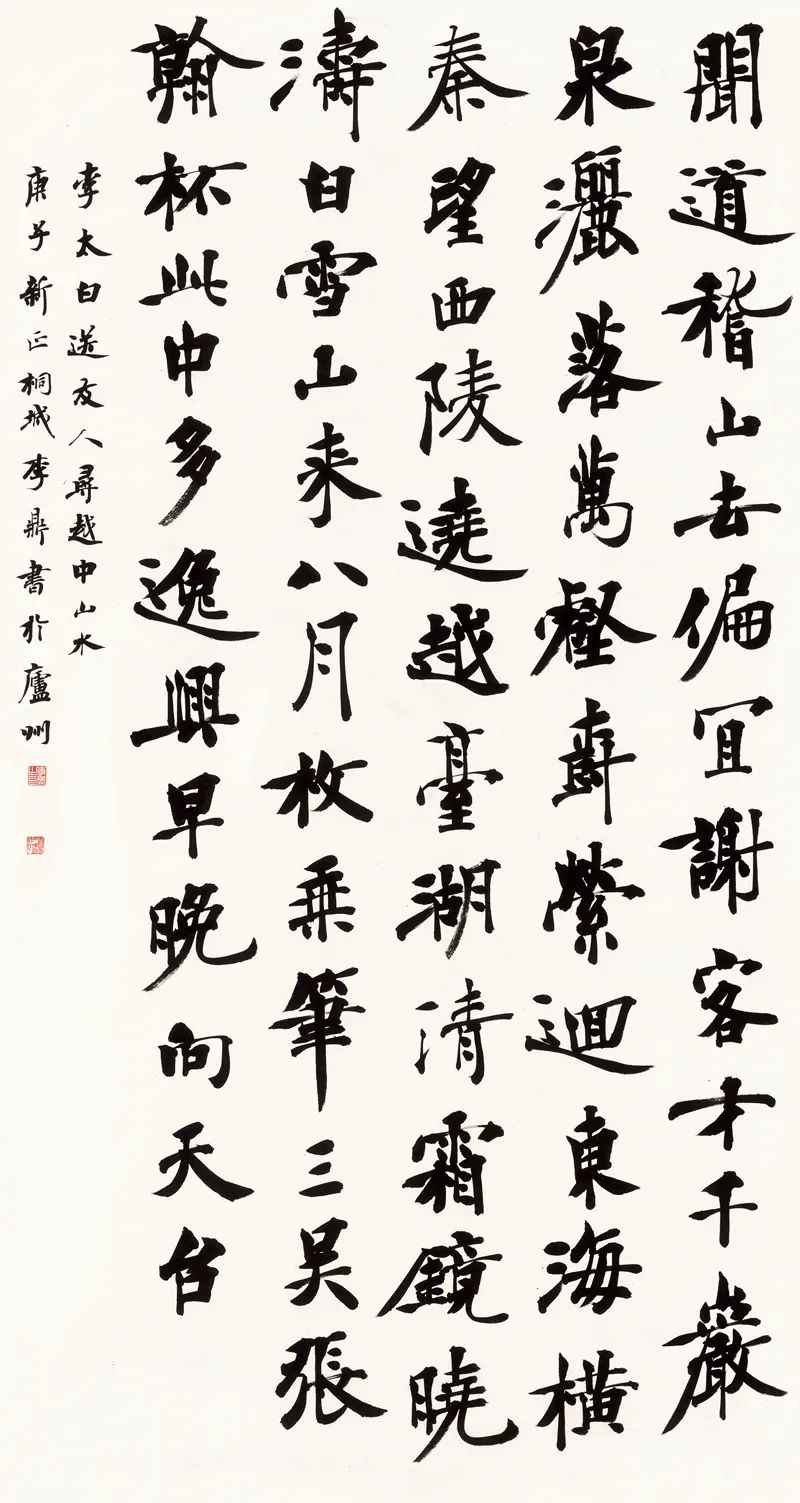 聞道稽山去偏宜謝客才千巖
泉灑落萬壑樹縈迴東海橫
秦望西陵遶越臺湖清霜鏡曉
濤白雪山來八月枚乘筆三吳張
翰杯此中多逸興早晚向天台
李太白送友人尋越中山水
庚子新正桐城李鼎書於廬州